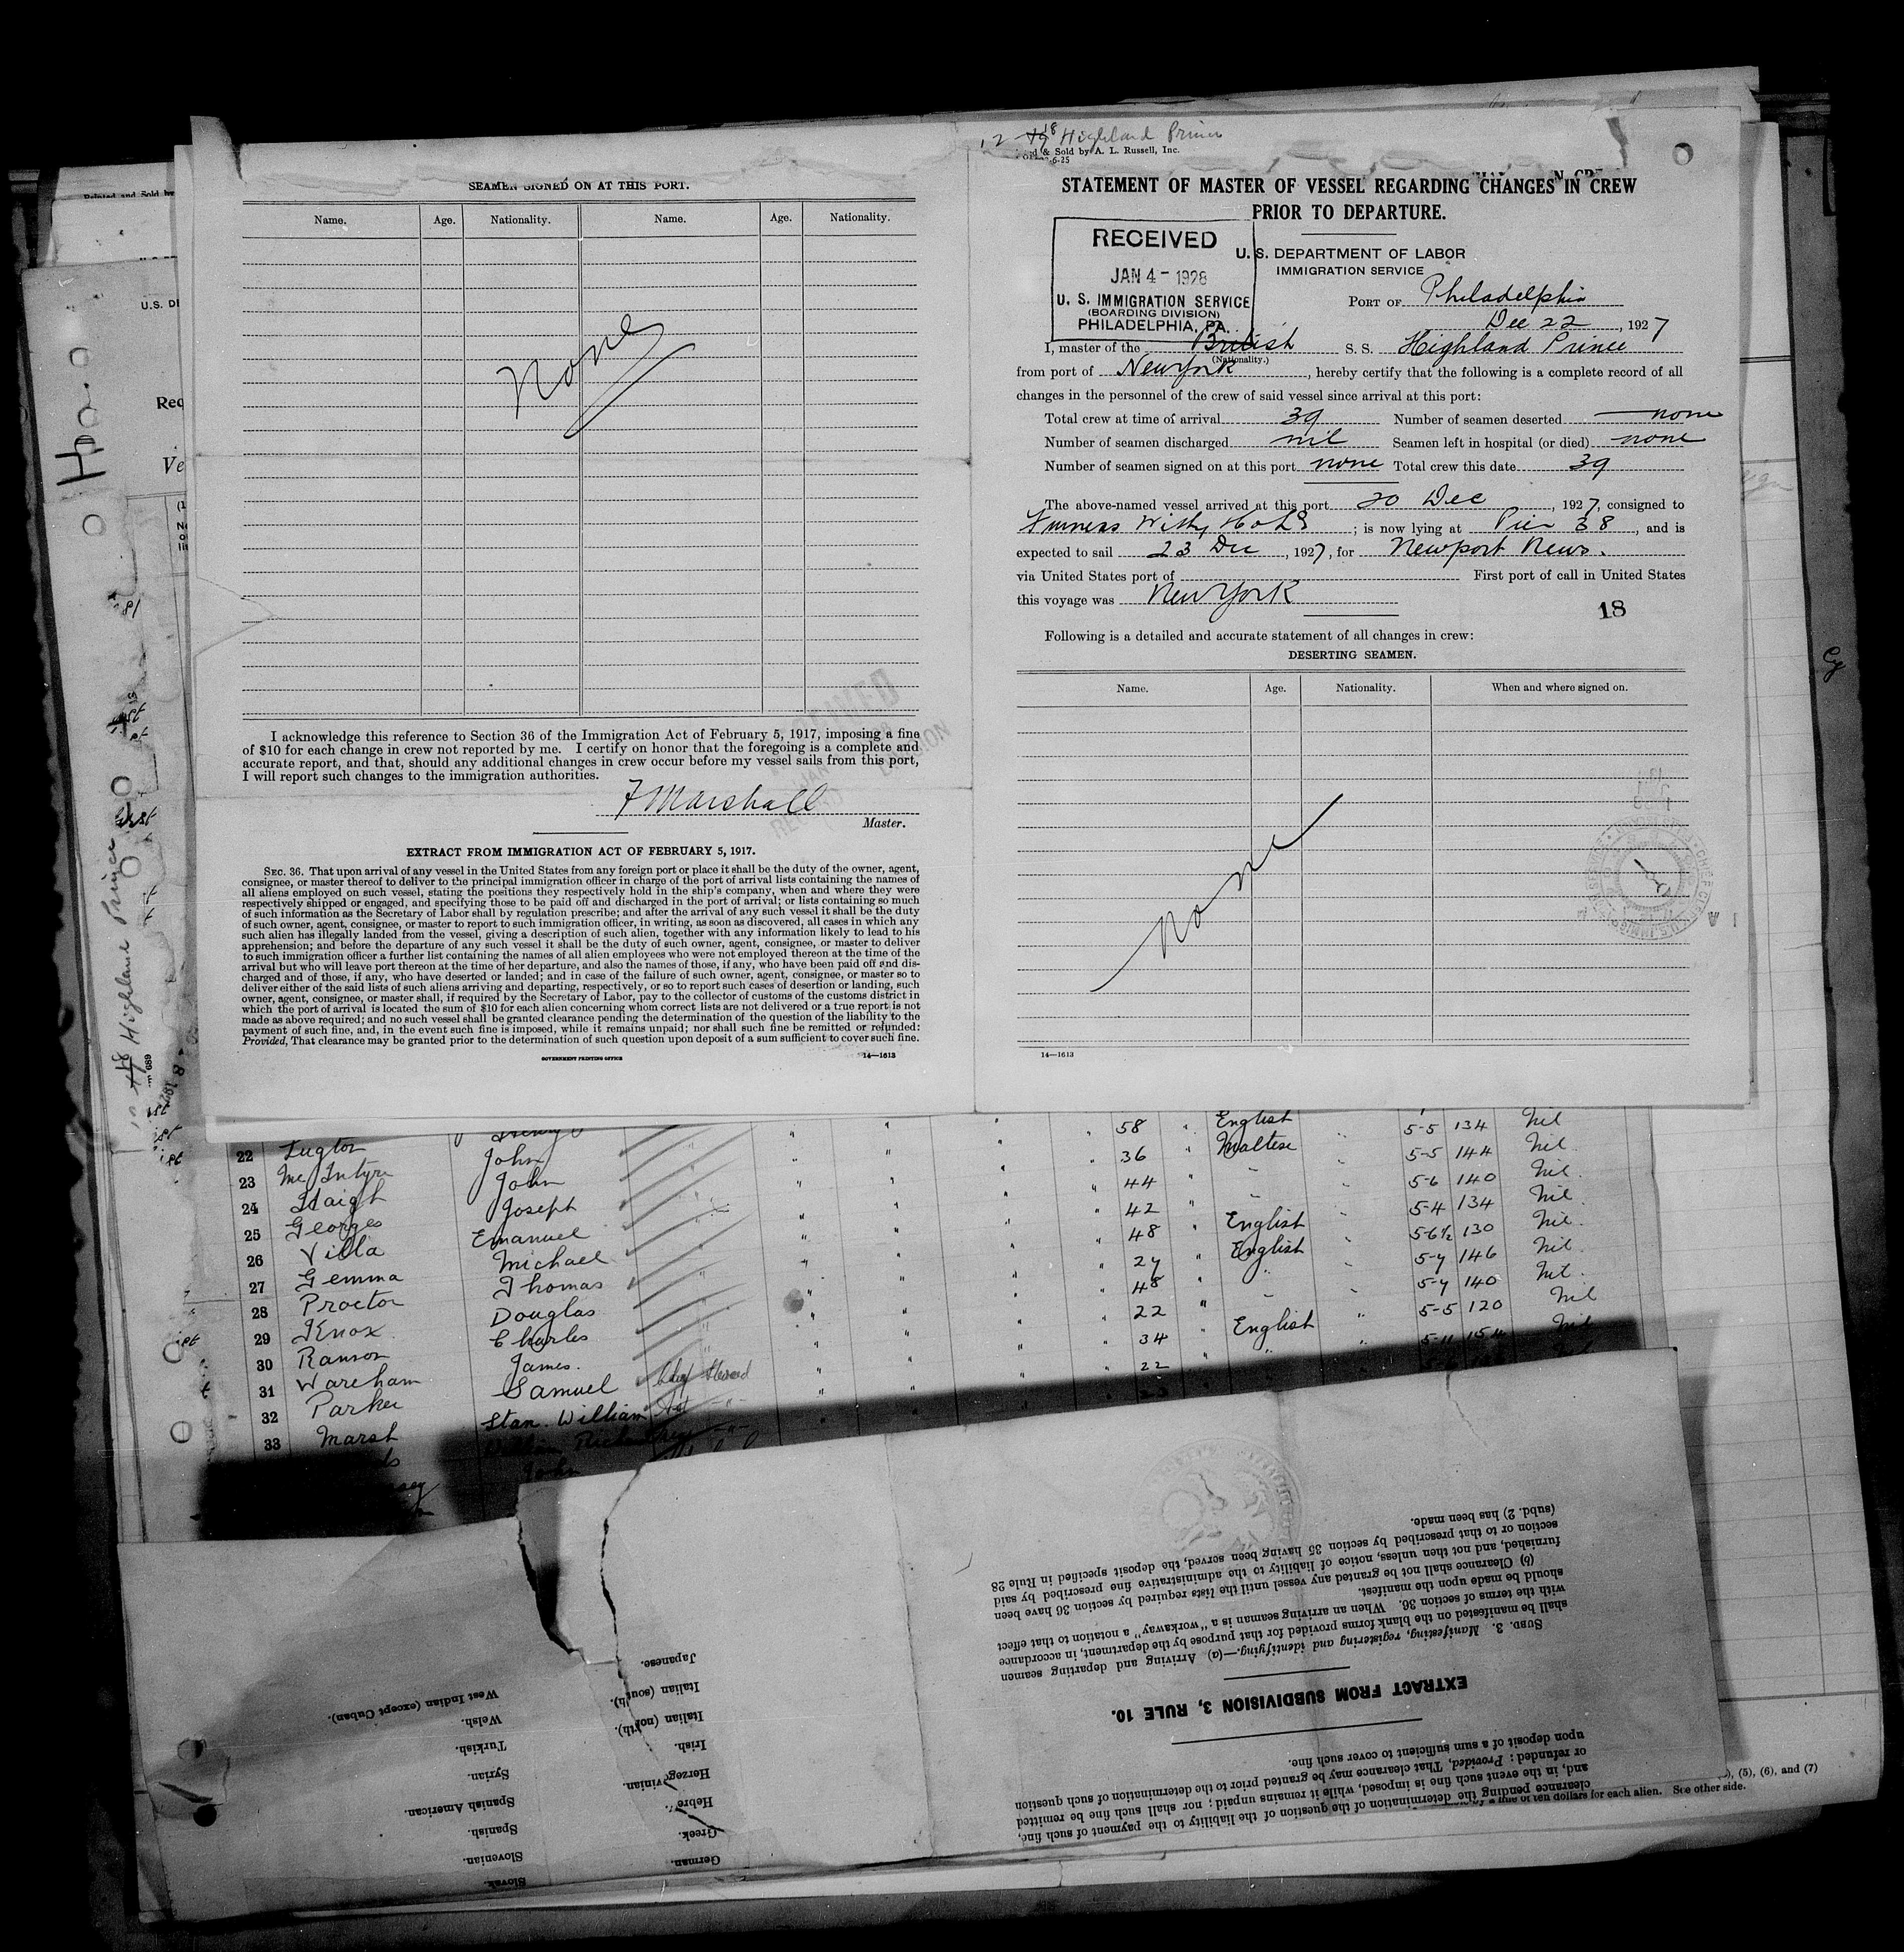 12 18 Highland Prince
& Sold by A. L. Russell, Inc.
SEAMEN SIGNED ON AT THIS PORT.
Name. Age. Nationality. Name. Age. Nationality.
None
I acknowledge this reference to Section 36 of the Immigration Act of February 5, 1917, imposing a fine
of $10 for each change in crew not reported by me. I certify on honor that the foregoing is a complete and
accurate report, and that, should any additional changes in crew occur before my vessel sails from this port,
I will report such changes to the immigration authorities.
F Marshall
Master.
EXTRACT FROM IMMIGRATION ACT OF FEBRUARY 5, 1917.
SEC. 36. That upon arrival of any vessel in the United States from any foreign port or place it shall be the duty of the owner, agent,
consignee, or master thereof to deliver to the principal immigration officer in charge of the port of arrival lists containing the names of
all aliens employed on such vessel, stating the positions they respectively hold in the ship's company, when and where they were
respectively shipped or engaged, and specifying those to be paid off and discharged in the port of arrival; or lists containing so much
of such information as the Secretary of Labor shall by regulation prescribe; and after the arrival of any such vessel it shall be the duty
of such owner, agent, consignee, or master to report to such immigration officer, in writing, as soon as discovered, all cases in which any
such alien has illegally landed from the vessel, giving a description of such alien, together with any information likely to lead to his
apprehension; and before the departure of any such vessel it shall be the duty of such owner, agent, consignee, or master to deliver
to such immigration officer a further list containing the names of all alien employees who were not employed thereon at the time of the
arrival but who will leave port thereon at the time of her departure, and also the names of those, if any, who have been paid off and dis-
charged and of those, if any, who have deserted or landed; and in case of the failure of such owner, agent, consignee, or master so to
deliver either of the said lists of such aliens arriving and departing, respectively, or so to report such cases of desertion or landing, such
owner, agent, consignee, or master shall, if required by the Secretary of Labor, pay to the collector of customs of the customs district in
which the port of arrival is located the sum of $10 for each alien concerning whom correct lists are not delivered or a true report is not
made as above required; and no such vessel shall be granted clearance pending the determination of the question of the liability to the
payment of such fine, and, in the event such fine is imposed, while it remains unpaid; nor shall such fine be remitted or refunded:
Provided, That clearance may be granted prior to the determination of such question upon deposit of a sum sufficient to cover such fine.
GOVERNMENT PRINTING OFFICE 14—1613
STATEMENT OF MASTER OF VESSEL REGARDING CHANGES IN CREW
PRIOR TO DEPARTURE.
RECEIVED
JAN 4 - 1928
U. S. IMMIGRATION SERVICE
(BOARDING DIVISION)
PHILADELPHIA, PA.
U. S. DEPARTMENT OF LABOR
IMMIGRATION SERVICE
PORT OF Philadelphia
Dec 22, 1927
I, master of the British S. S. Highland Prince
(Nationality.)
from port of New York, hereby certify that the following is a complete record of all
changes in the personnel of the crew of said vessel since arrival at this port:
Total crew at time of arrival 39 Number of seamen deserted none
Number of seamen discharged nil Seamen left in hospital (or died) none
Number of seamen signed on at this port none Total crew this date 39
The above-named vessel arrived at this port 20 Dec, 1927, consigned to
Furness Withy & Co Ld; is now lying at Pier 38, and is
expected to sail 23 Dec, 1927, for Newport News.
via United States port of First port of call in United States
this voyage was New York
18
Following is a detailed and accurate statement of all changes in crew:
DESERTING SEAMEN.
Name. Age. Nationality. When and where signed on.
None
14—1613
58 English 5-5 134 Nil
22 Lugton John 36 Maltese 5-5 144 Nil
23 McIntyre John 44 5-6 140 Nil
24 Haigh Joseph 42 5-4 134 Nil
25 Georges Emanuel 48 English 5-6½ 130 Nil
26 Villa Michael 27 English 5-7 146 Nil
27 Gemma Thomas 48 5-7 140 Nil
28 Proctor Douglas 22 5-5 120 Nil
29 Knox Charles 34 English 5-11 154 Nil
30 Ranson James 22
31 Wareham Samuel
32 Parker Stan. William
33 Marsh
John
Highland Prince
(subd. 2) has been made.
section or to that prescribed by section 35 having been served, the deposit specified in Rule 28
furnished, and not then unless, notice of liability to the administrative fine prescribed by said
(b) Clearance shall not be granted any vessel until the lists required by section 36 have been
should be made upon the manifest.
with the terms of section 36. When an arriving seaman is a "workaway" a notation to that effect
shall be manifested on the blank forms provided for that purpose by the department, in accordance
SUBD. 3. Manifesting, registering and identifying.—(a) Arriving and departing seamen
EXTRACT FROM SUBDIVISION 3, RULE 10.
upon deposit of a sum sufficient to cover such fine.
or refunded: Provided, That clearance may be granted prior to the determination of such question
and, in the event such fine is imposed, while it remains unpaid; nor shall such fine be remitted
clearance pending the determination of the question of the liability to the payment of such fine,
Japanese.
Italian (south).
Italian (north).
Irish.
Herzegovinian.
Hebrew.
Greek.
German.
West Indian (except Cuban).
Welsh.
Turkish.
Syrian.
Spanish American.
Spanish.
Slovenian.
Slovak.
(5), (6), and (7)
of ten dollars for each alien. See other side.